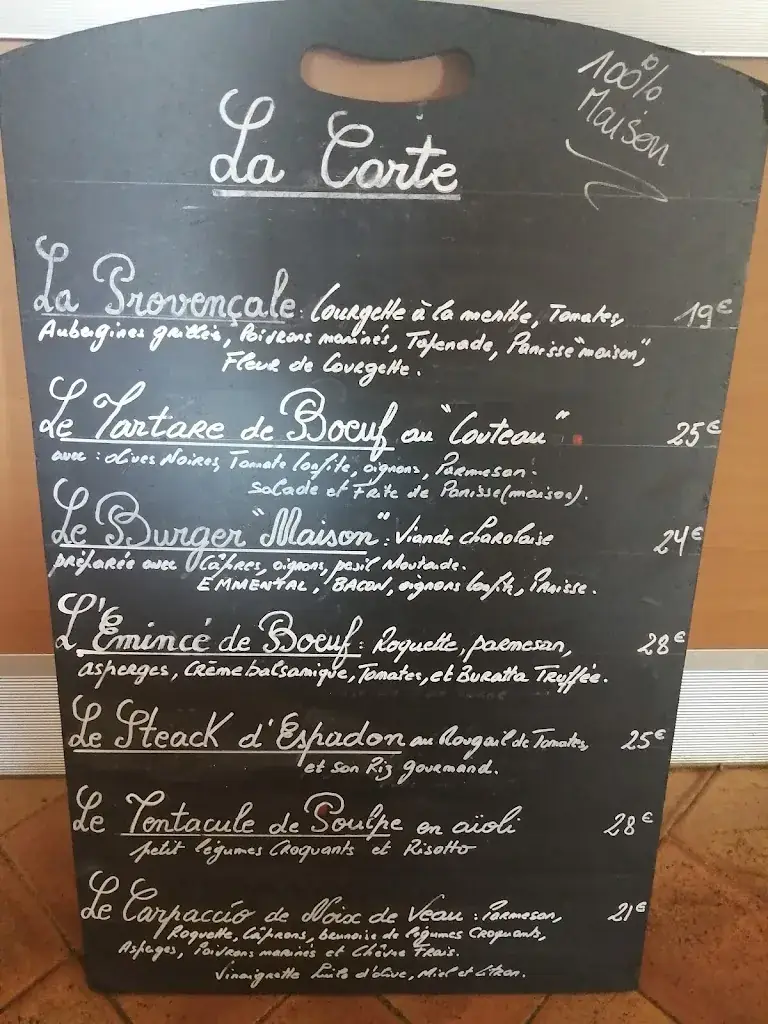 100%
Maison
La Carte
La Provençale : Courgette à la menthe, Tomates, 19€
Aubergines grillées, Poivrons marinés, Tapenade, Panisse "maison",
Fleur de Courgette.
Le Tartare de Boeuf au "Couteau" 25€
avec : olives Noires, Tomate Confite, oignons, Parmesan.
salade et Frite de Panisse (maison).
Le Burger "Maison" : Viande charolaise 24€
préparée avec Câpres, oignons, persil Moutarde.
EMMENTAL, BACON, oignons Confits, Panisse.
L'Émincé de Boeuf : Roquette, parmesan, 28€
asperges, Crème balsamique, Tomates, et Buratta Truffée.
Le Steack d'Espadon au Rougail de Tomates, 25€
et son Riz gourmand.
Le Tentacule de Poulpe en aïoli 28€
petit légumes Croquants et Risotto
Le Carpaccio de Noix de Veau : Parmesan, 21€
Roquette, Câprons, brunoise de légumes Croquants,
Asperges, Poivrons marinés et Chèvre Frais.
Vinaigrette Huile d'olive, Miel et Citron.